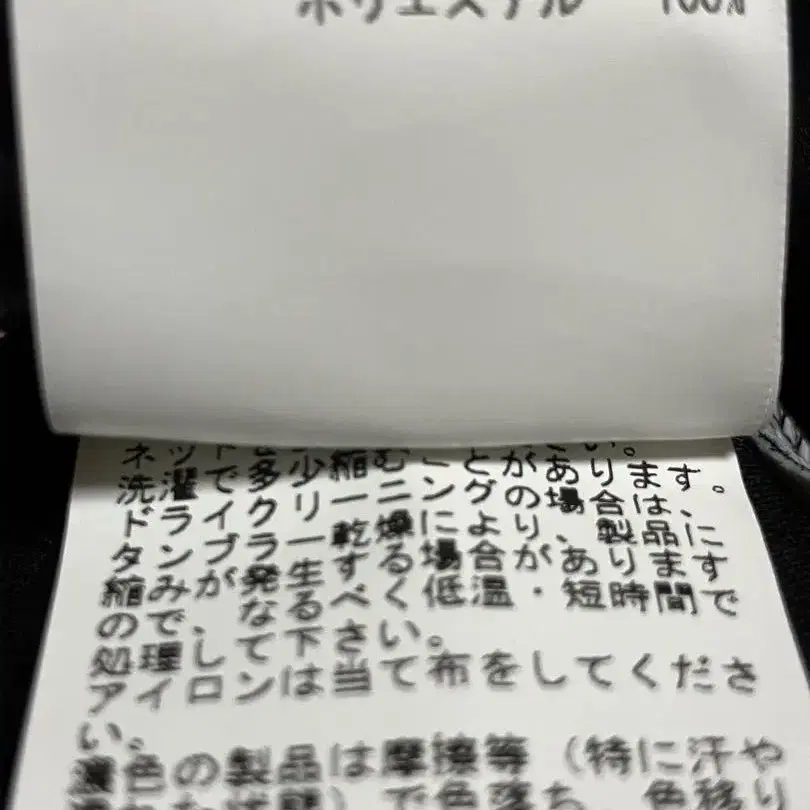 ポリエステル 100%
い。
洗濯で多少縮むことがあります。
ドライクリーニングの場合は、
タンブラー乾燥により、製品に
縮みが発生する場合があります
ので、なるべく低温・短時間で
処理して下さい。
アイロンは当て布をしてくださ
い。
濃色の製品は摩擦等（特に汗や
で色落ち、色移り